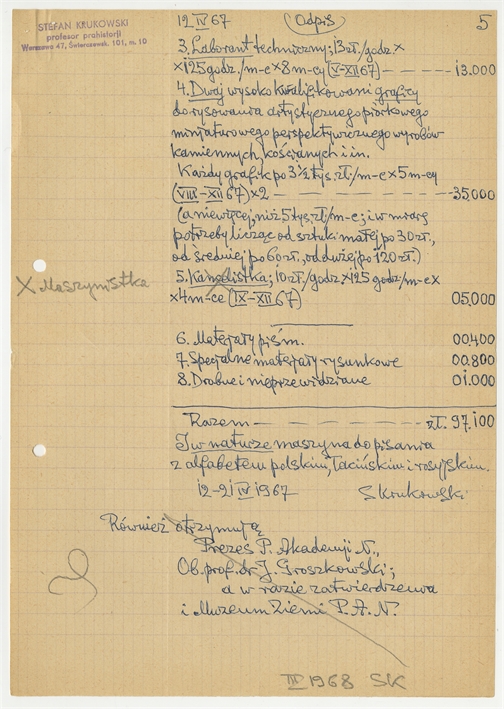 STEFAN KRUKOWSKI
profesor prehistorji
Warszawa 47, Świerczewsk. 101, m. 10
12 IV 67 Odpis 5
3. Laborant techniczny; 13 zł./godz. ×
×125 godz./m-c × 8 m-cy (V-XII 67) — 13.000
4. Dwój wysoko kwalifikowani graficy
do rysowania artystycznego piórkowego
minjaturowego perspektywicznego wyrobów
kamiennych, kościanych i in.
Każdy grafik po 3½ tys. zł./m-c × 5 m-cy
(VIII-XII 67) × 2 — 35.000
(a nie więcej, niż 5 tys. zł/m-c; i w miarę
potrzeby licząc od sztuki małej po 30 zł.,
od średniej po 60 zł., od dużej po 120 zł.)
5. Kancelistka; 10 zł./godz. × 125 godz/m-c ×
× Maszynistka
×4 m-ce (IX-XII 67) 05.000
6. Materjały piśm. 00400
7. Specjalne materjały rysunkowe 00.800
8. Drobne i nieprzewidziane 01.000
Razem — zł. 97.100
I w naturze maszyna do pisania
z alfabetem polskim, łacińskim i rosyjskim.
12-21 IV 1967 S Krukowski
Również otrzymują
Prezes P. Akademji N.,
Ob. prof. dr J. Groszkowski;
a w razie zatwierdzenia
i Muzeum Ziemi P.A.N.
III 1968 SK